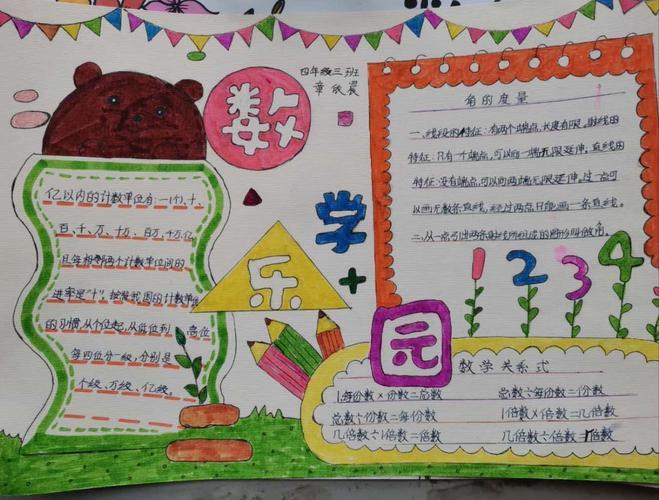 数
学
乐
园
四年级三班
章欣晨
亿以内的计数单位有:一(个)、十、
百、千、万、十万、百万、千万、亿
且每相邻两个计数单位间的
进率是"十",按照我国的计数单位
的习惯,从个位起,从低位到高位
每四位分一级,分别是
个级、万级、亿级。
角的度量
一、线段的特征:有两个端点,长度有限。射线的
特征:只有一个端点,可以向一端无限延伸。直线的
特征:没有端点,可以向两端无限延伸。过一点可
以画无数条直线,经过两点只能画一条直线。
二、从一点引出两条射线所组成的图形叫做角。
1 2 3 4
数学关系式
1每份数×份数=总数
总数÷每份数=份数
总数÷份数=每份数
1倍数×倍数=几倍数
几倍数÷1倍数=倍数
几倍数÷倍数=1倍数